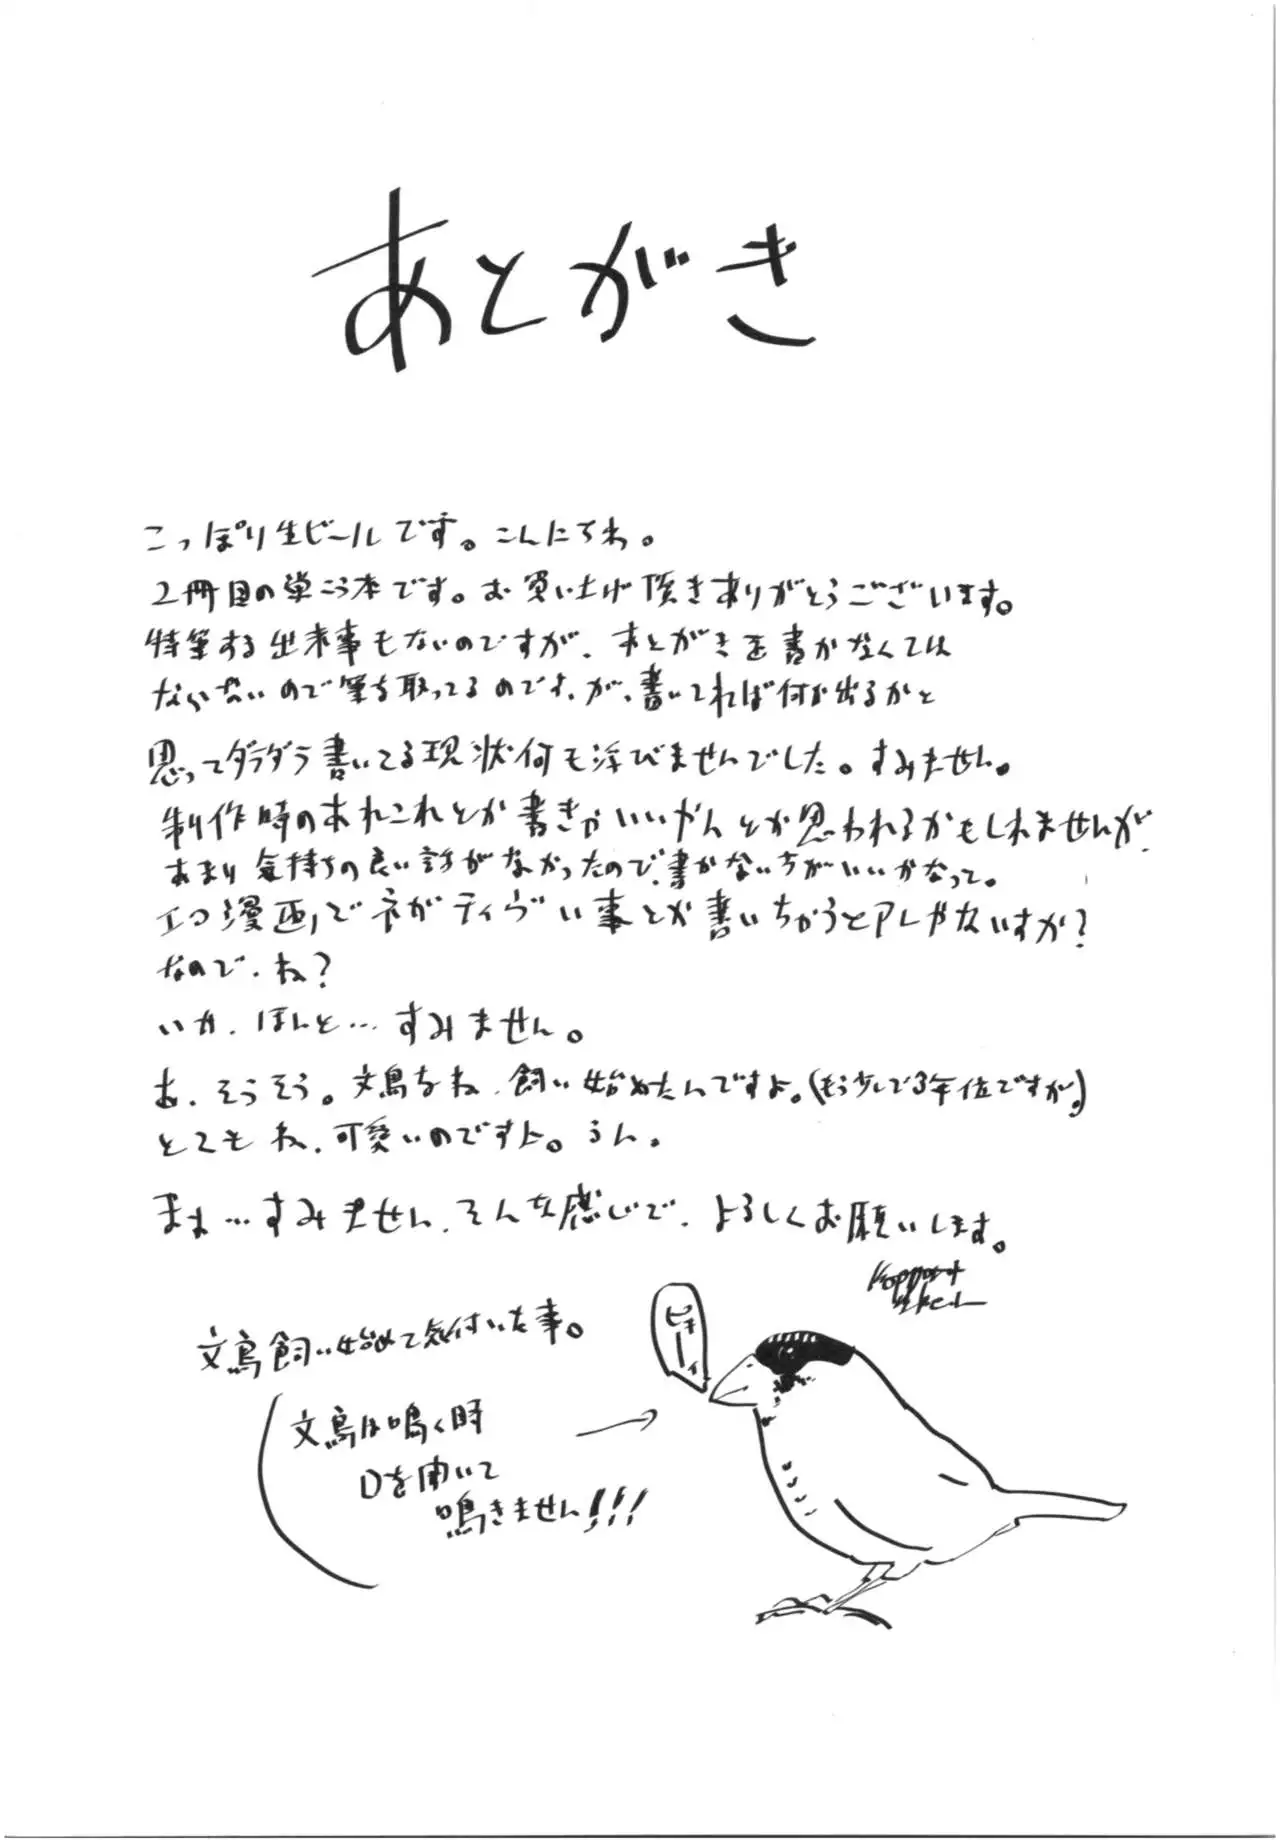 あとがき
こっぽり生ビールです。こんにちわ。
2冊目の単こう本です。お買い上げ頂きありがとうございます。
特筆する出来事もないのですが、あとがきを書かなくては
ならないので筆を取ってるのです、が、書いてれば何か出るかと
思ってダラダラ書いてる現状何も浮びませんでした。すみません。
制作時のあれこれとか書きゃいいやんとか思われるかもしれませんが、
あまり気持ちの良い話がなかったので、書かない方がいいかなって。
エロ漫画でネガティヴい事とか書いちゃうとアレじゃないすか?
なので、ね?
いや、ほんと…すみません。
あ、そうそう。文鳥をね、飼い始めたんですよ。(もう少しで3年位ですが。)
とてもね、可愛いのですよ。うん。
まぁ…すみません、そんな感じで、よろしくお願いします。
文鳥飼い始めて気付いた事。
ピキーィ
文鳥は鳴く時
口を開いて
鳴きません!!!